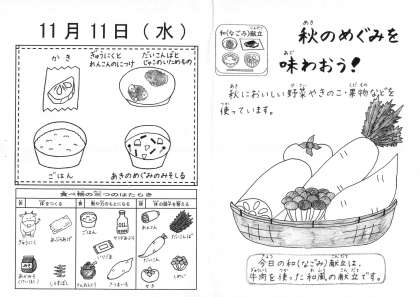 11月11日(水)
かき
ぎゅうにくと
れんこんのにつけ
だいこんばと
じゃこのいためもの
ごはん
あきのめぐみのみそしる
食べ物の三つのはたらき
体をつくる
熱や力のもとになる
体の調子を整える
ぎゅうにく
あぶらあげ
ごはん
れんこん
だいこんば
かき
和(なごみ)献立
秋のめぐみを
味わおう!
秋においしい野菜やきのこ・果物などを
使っています。
今日の和(なごみ)献立は、
牛肉を使った和風の献立です。